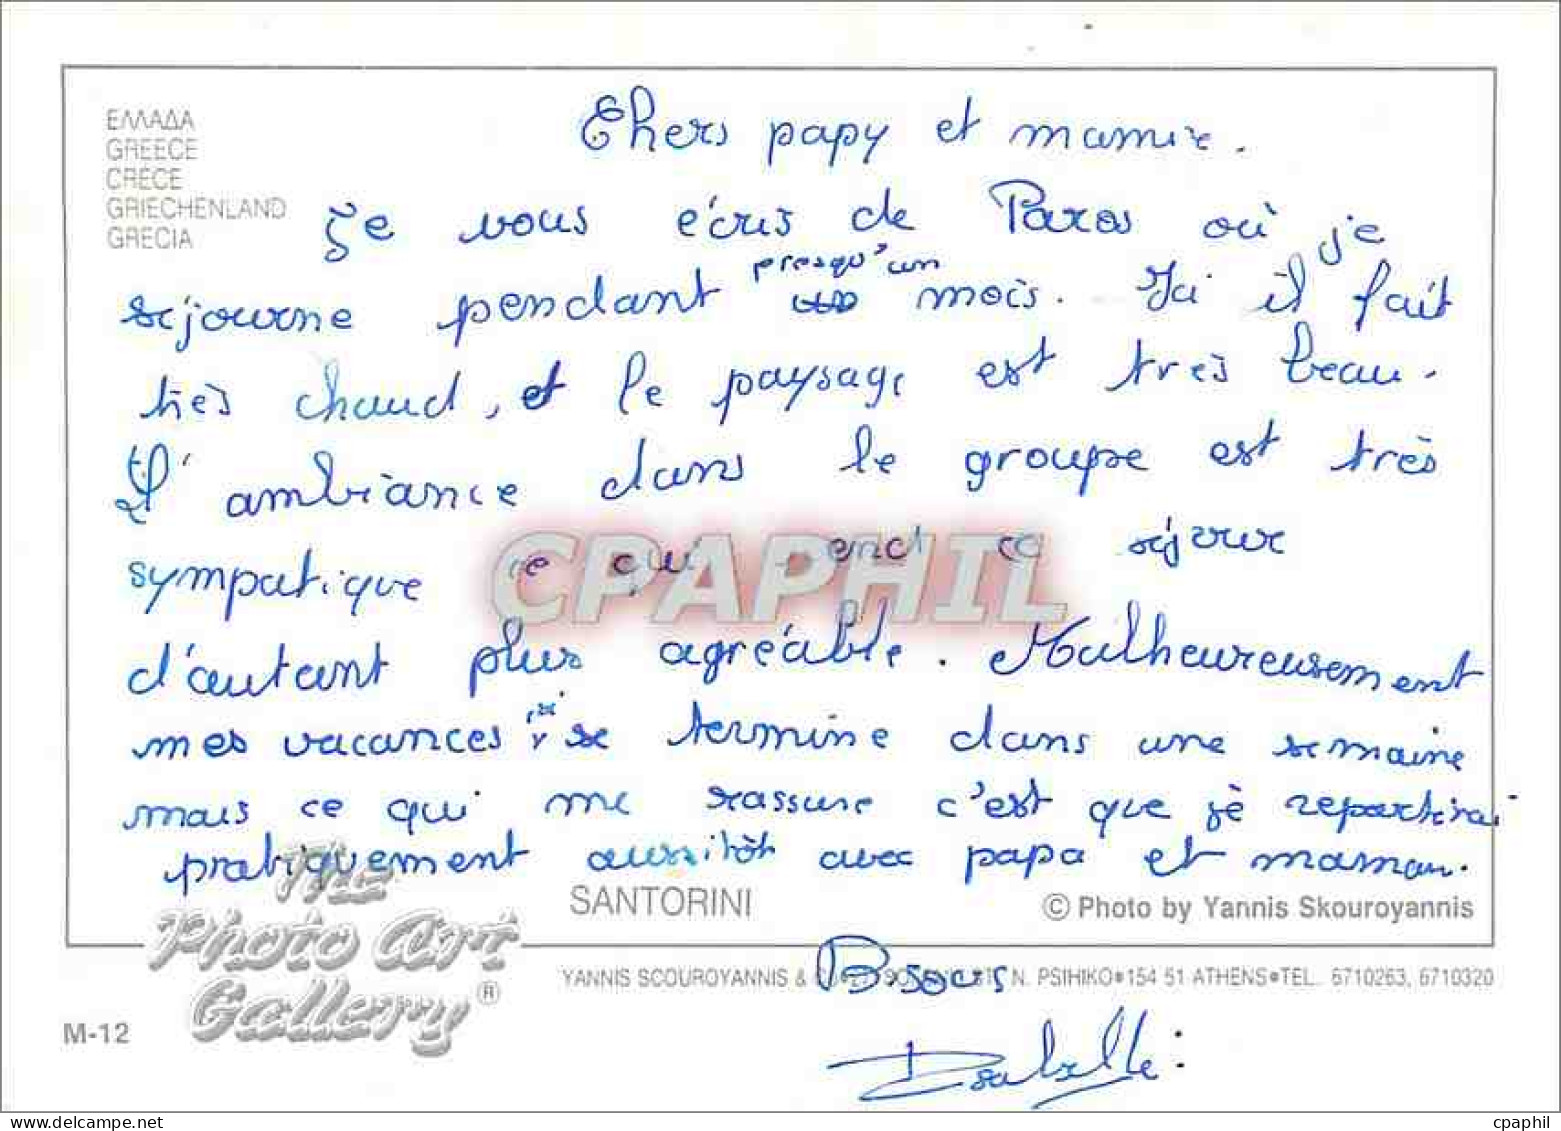 ΕΛΛΑΔΑ
GREECE
CRECE
GRIECHENLAND
GRECIA
Chers papy et mamie.
Je vous écris de Paros où je
séjourne pendant presqu'un mois. Ici il fait
très chaud, et le paysage est très beau.
L'ambiance dans le groupe est très
sympatique ce qui rend ce séjour
d'autant plus agréable. Malheureusement
mes vacances se termine dans une semaine
mais ce qui me rassure c'est que je repartirai
pratiquement aussitôt avec papa et maman.
CPAPHIL
SANTORINI
© Photo by Yannis Skouroyannis
The
Photo Art
Gallery ®
YANNIS SCOUROYANNIS & N. PSIHIKO•154 51 ATHENS•TEL. 6710263, 6710320
Bisous
Isabelle
M-12
www.delcampe.net
cpaphil